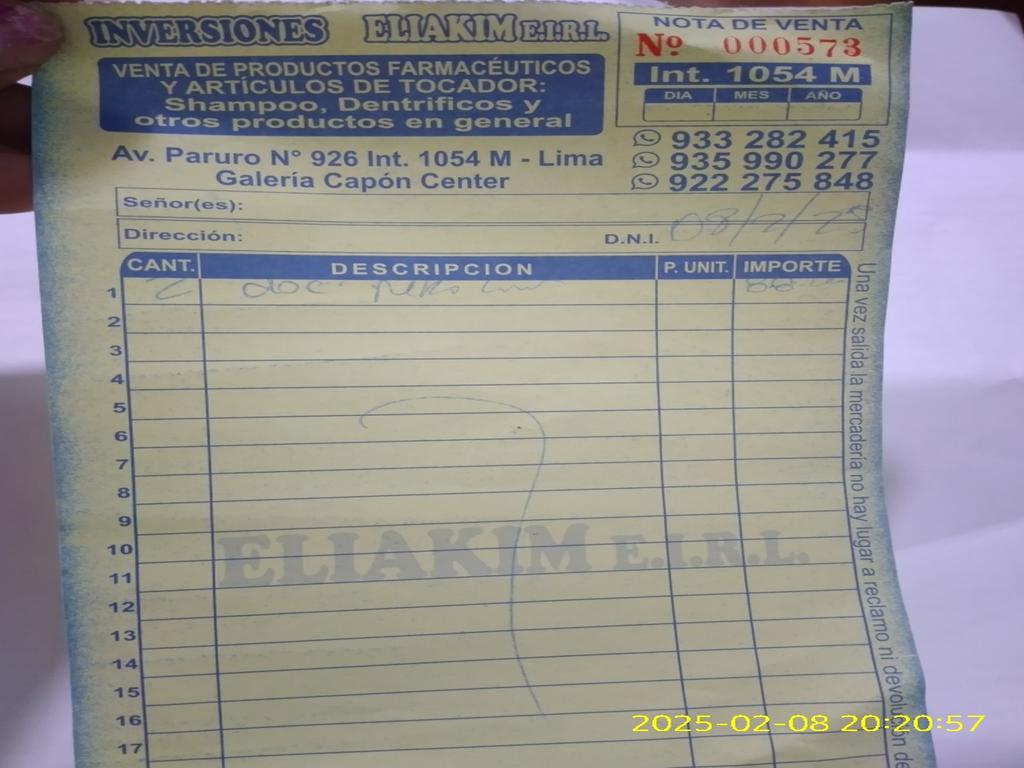 INVERSIONES ELIAKIM E.I.R.L.
VENTA DE PRODUCTOS FARMACÉUTICOS
Y ARTÍCULOS DE TOCADOR:
Shampoo, Dentrificos y
otros productos en general
Av. Paruro N° 926 Int. 1054 M - Lima
Galería Capón Center
NOTA DE VENTA
Nº 000573
Int. 1054 M
DIA MES AÑO
933 282 415
935 990 277
922 275 848
Señor(es):
Dirección: D.N.I. 08/2/25
CANT. DESCRIPCION P. UNIT. IMPORTE
1 2 doc.
2
3
4
5
6
7
8
9
10
11
12
13
14
15
16
17
ELIAKIM E.I.R.L.
Una vez salida la mercadería no hay lugar a reclamo ni devolución de
2025-02-08 20:20:57